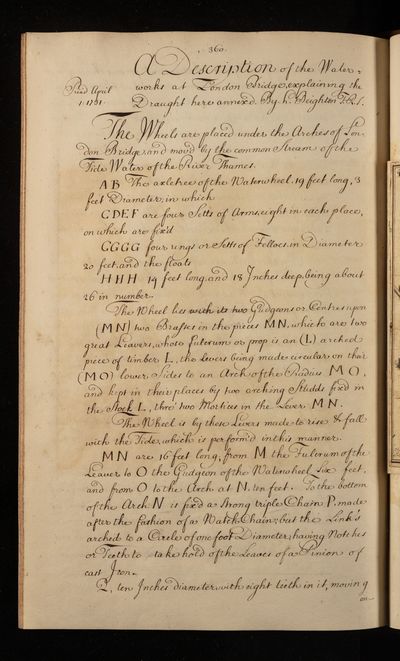 360.
A Description of the Water-
works at London Bridge, explaining the
Draught here annex'd. By H. Beighton F.R.S.
Read April
1. 1731.
The Wheels are placed under the Arches of Lon-
don Bridge, and mov'd by the common Stream of the
Tide Water of the River Thames.
AB The axletree of the Waterwheel, 19 feet long, 3
feet Diameter, in which
CDEF are four Setts of Arms, eight in each place,
on which are fix'd
GGGG four rings or Setts of Felloes, in Diameter
20 feet, and the floats
HHH 14 feet long, and 18 Inches deep, being about
26 in number.
The Wheel lies with its two Gudgeons or Centres upon
(MN) two Brasses in the pieces MN, which are two
great Leavers, whose fulcrum or prop is an (L) arched
piece of timber L, the Levers being made circular on their
(MO) lower Sides to an Arch of the Radius MO,
and kept in their places by two arching Studds fix'd in
the Stock L, thro' two Mortices in the Lever MN.
The Wheel is by these Levers made to rise & fall
with the Tide, which is perform'd in this manner.
MN are 16 feet long, from M the Fulcrum of the
Leaver to O the Gudgeon of the Waterwheel, six feet,
and from O to the Arch at N, ten feet. To the bottom
of the Arch N is fix'd a strong triple Chain P, made
after the fashion of a Watch Chain, but the Link's
arched to a Circle of one foot Diameter, having Notches
or Teeth to take hold of the Leaves of a Pinion of
cast Iron.
Q, ten Inches diameter, with eight teeth in it, moving
on